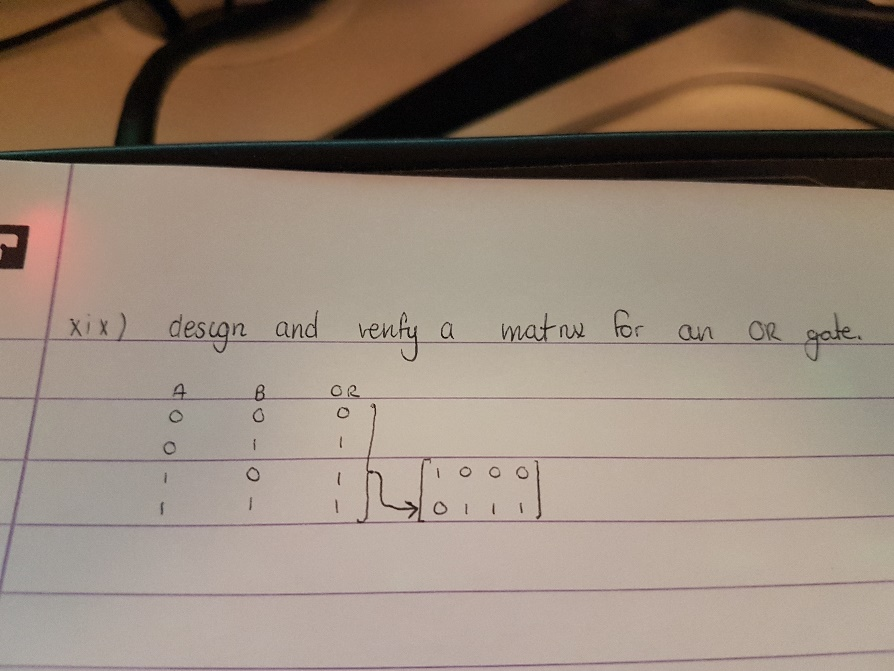 xix) design and verify a matrix for an OR gate.
A B OR
0 0 0
0 1 1
1 0 1 [1 0 0 0]
1 1 1 [0 1 1 1]